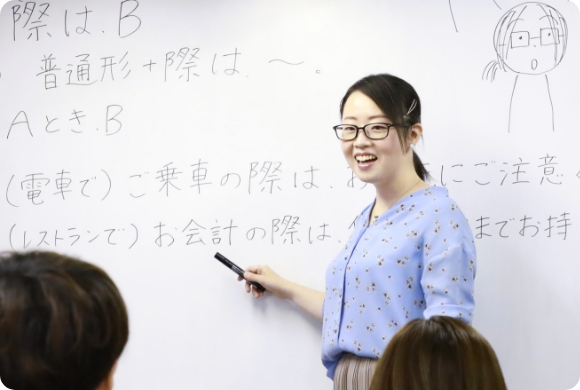 際は、B
普通形+際は、～。
Aとき、B
(電車で)ご乗車の際は、お にご注意
(レストランで)お会計の際は、 までお持